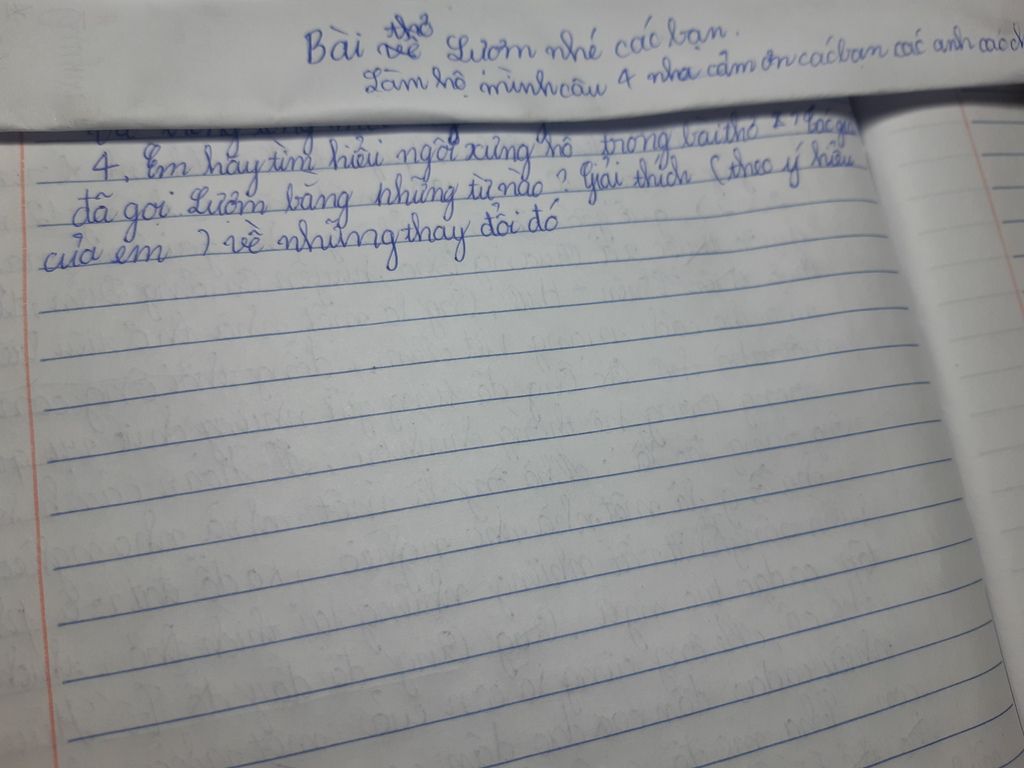 Bài thơ về Lượm nhé các bạn.
Làm hộ mình câu 4 nha cảm ơn các bạn các anh các
4. Em hãy tìm hiểu ngôi xưng hô trong bài thơ tác giả
đã gọi Lượm bằng những từ nào? Giải thích (theo ý hiểu
của em) về những thay đổi đó